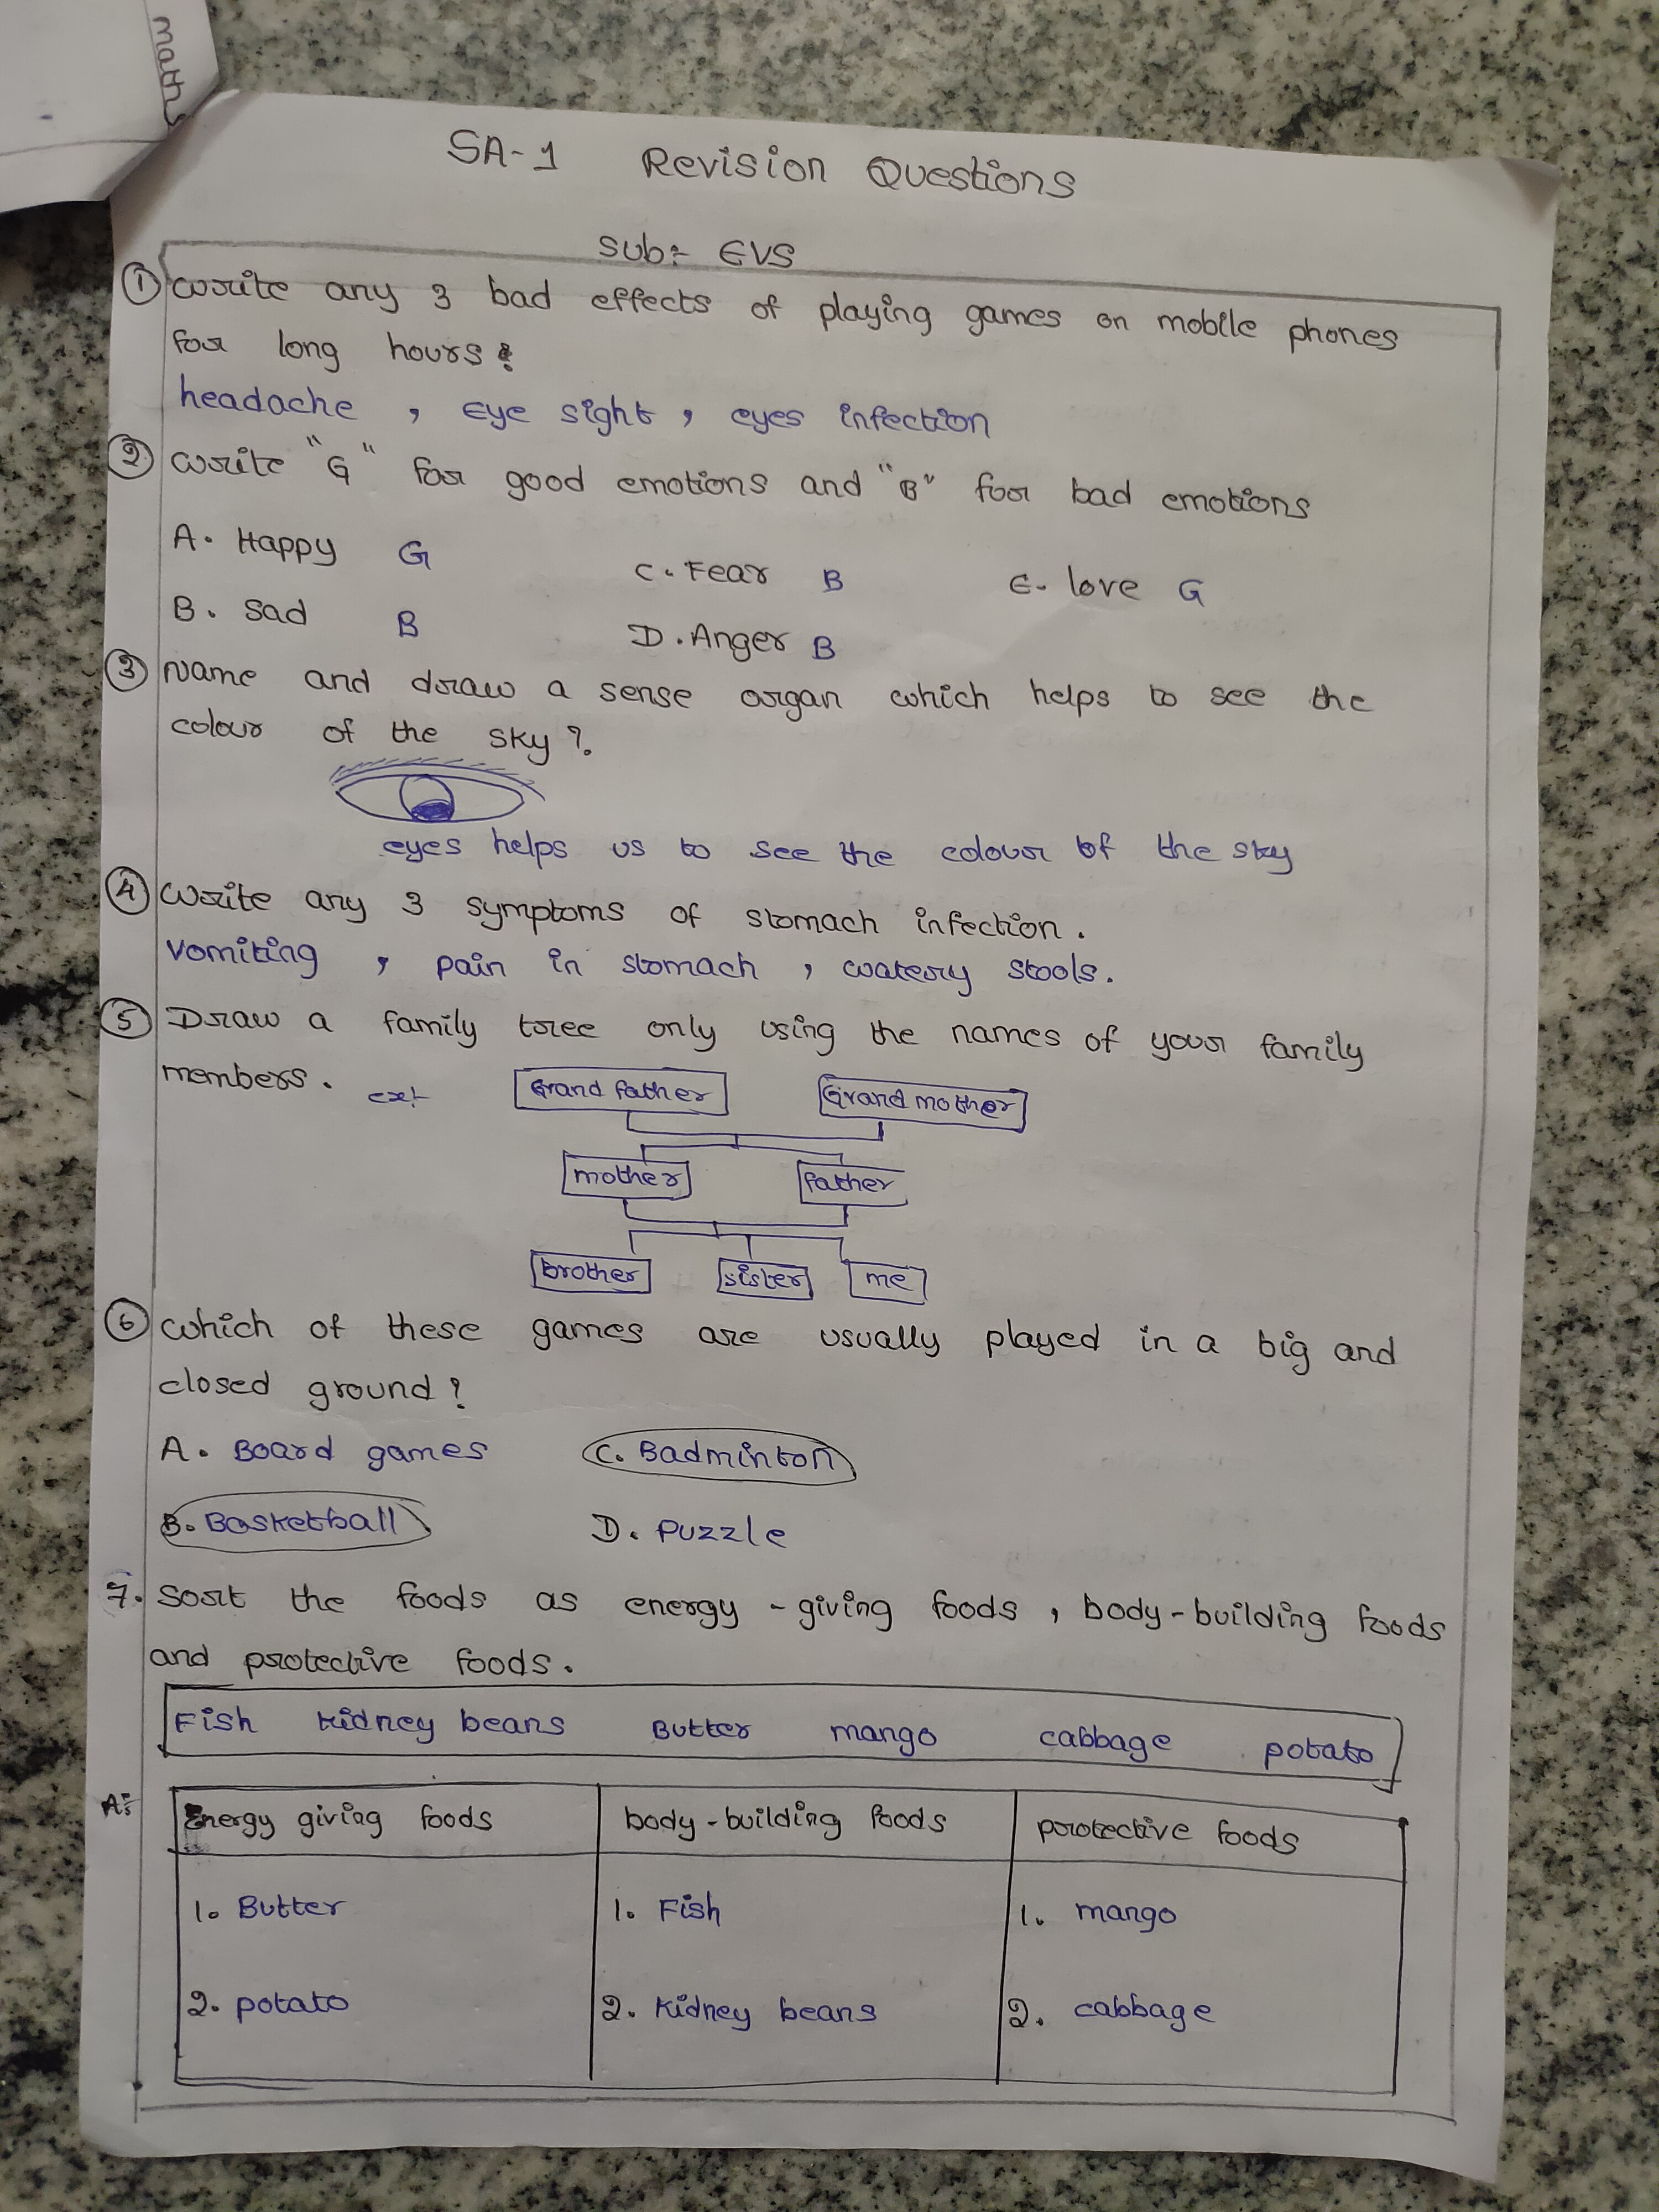 maths
SA-1 Revision Questions
Sub:- EVS
① write any 3 bad effects of playing games on mobile phones
for long hours?
headache , Eye sight , eyes infection
② write "G" for good emotions and "B" for bad emotions
A. Happy G C. Fear B E. love G
B. Sad B D. Anger B
③ Name and draw a sense organ which helps to see the
colour of the sky?
eyes helps us to see the colour of the sky
④ Write any 3 symptoms of stomach infection.
Vomiting , pain in stomach , watery stools.
⑤ Draw a family tree only using the names of your family
members. ex:-
Grand father Grand mother
mother father
brother sister me
⑥ which of these games are usually played in a big and
closed ground?
A. Board games C. Badminton
B. Basketball D. Puzzle
7. Sort the foods as energy-giving foods, body-building foods
and protective foods.
Fish Kidney beans Butter mango cabbage potato
A:
Energy giving foods body-building foods protective foods
1. Butter 1. Fish 1. mango
2. potato 2. Kidney beans 2. cabbage